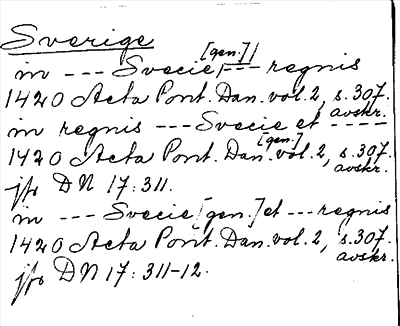 Sverige
in --- Svecie [gen.] --- regnis
1420 Acta Pont. Dan. vol. 2, s. 307.
avskr.
in regnis --- Svecie et ----
1420 Acta Pont. Dan. [gen.] vol. 2, s. 307.
avskr.
jfr DN 17:311.
in --- Svecie [gen.] et --- regnis
1420 Acta Pont. Dan. vol. 2, s. 307.
avskr.
jfr DN 17:311-12.